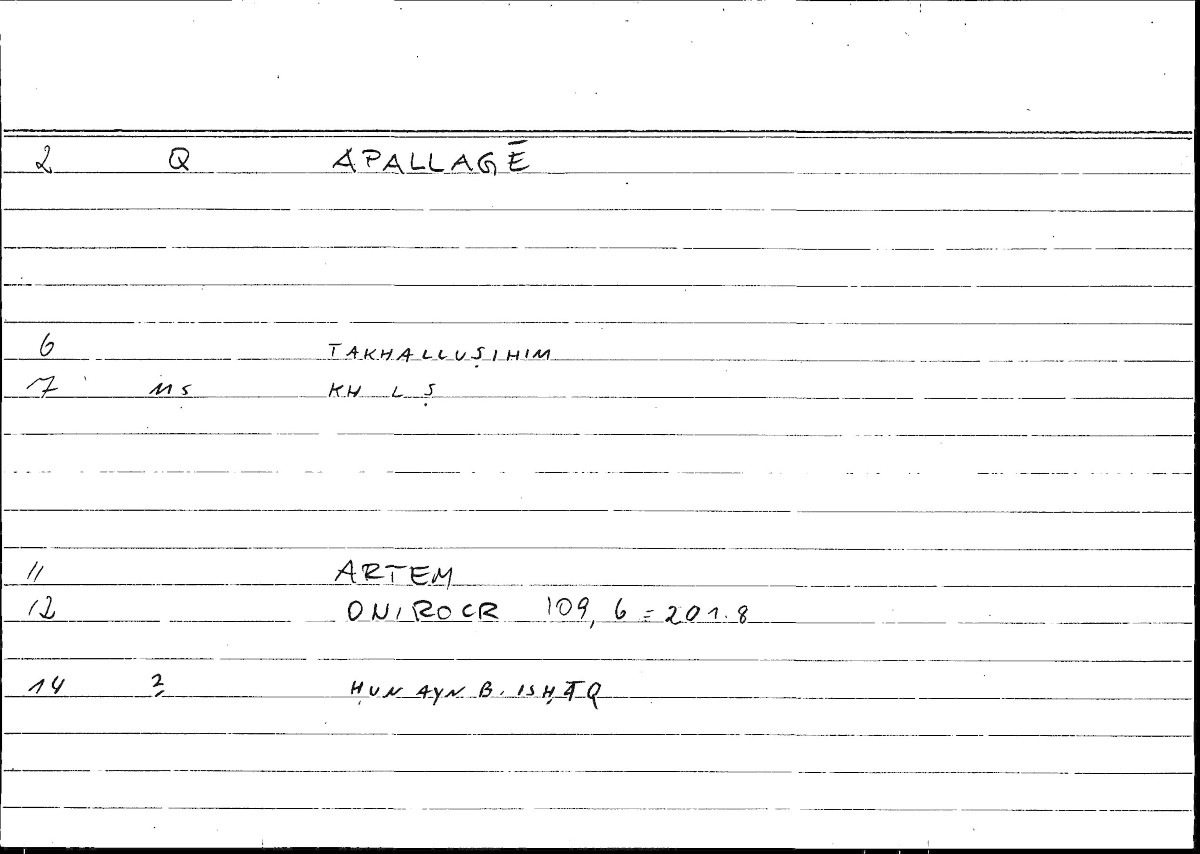 2 Q APALLAGĒ
6 TAKHALLUṢIHIM
7 MS KH L Ṣ
11 ARTEM
12 ONIROCR 109, 6 = 201.8
14 2 ḤUNAYN B. ISḤĀQ